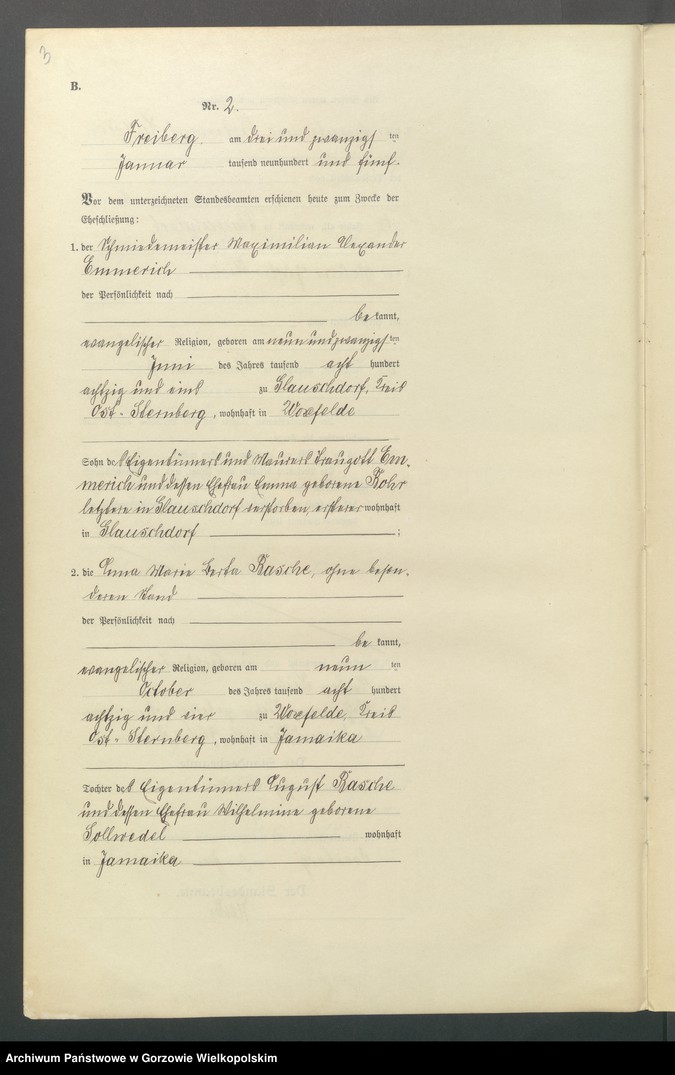 3
B.
Nr. 2.
Freiberg. am drei und zwanzigsten
Januar tausend neunhundert und fünf.
Vor dem unterzeichneten Standesbeamten erschienen heute zum Zwecke der
Eheschließung:
1. der Schmiedemeister Maximilian Alexander
Emmerich
der Persönlichkeit nach
bekannt,
evangelischer Religion, geboren am neun und zwanzigsten
Juni des Jahres tausend acht hundert
achtzig und eins zu Glauschdorf, Kreis
Ost-Sternberg, wohnhaft in Woxfelde
Sohn des Eigentümers und Maurers Traugott Em-
merich und dessen Ehefrau Emma geborene Rohr
letztere in Glauschdorf verstorben, ersterer wohnhaft
in Glauschdorf ;
2. die Anna Marie Berta Rasche, ohne beson-
deren Stand
der Persönlichkeit nach
bekannt,
evangelischer Religion, geboren am neun ten
October des Jahres tausend acht hundert
achtzig und vier zu Woxfelde, Kreis
Ost-Sternberg, wohnhaft in Jamaika
Tochter des Eigentümers August Rasche
und dessen Ehefrau Wilhelmine geborene
Sollwedel wohnhaft
in Jamaika
Archiwum Państwowe w Gorzowie Wielkopolskim